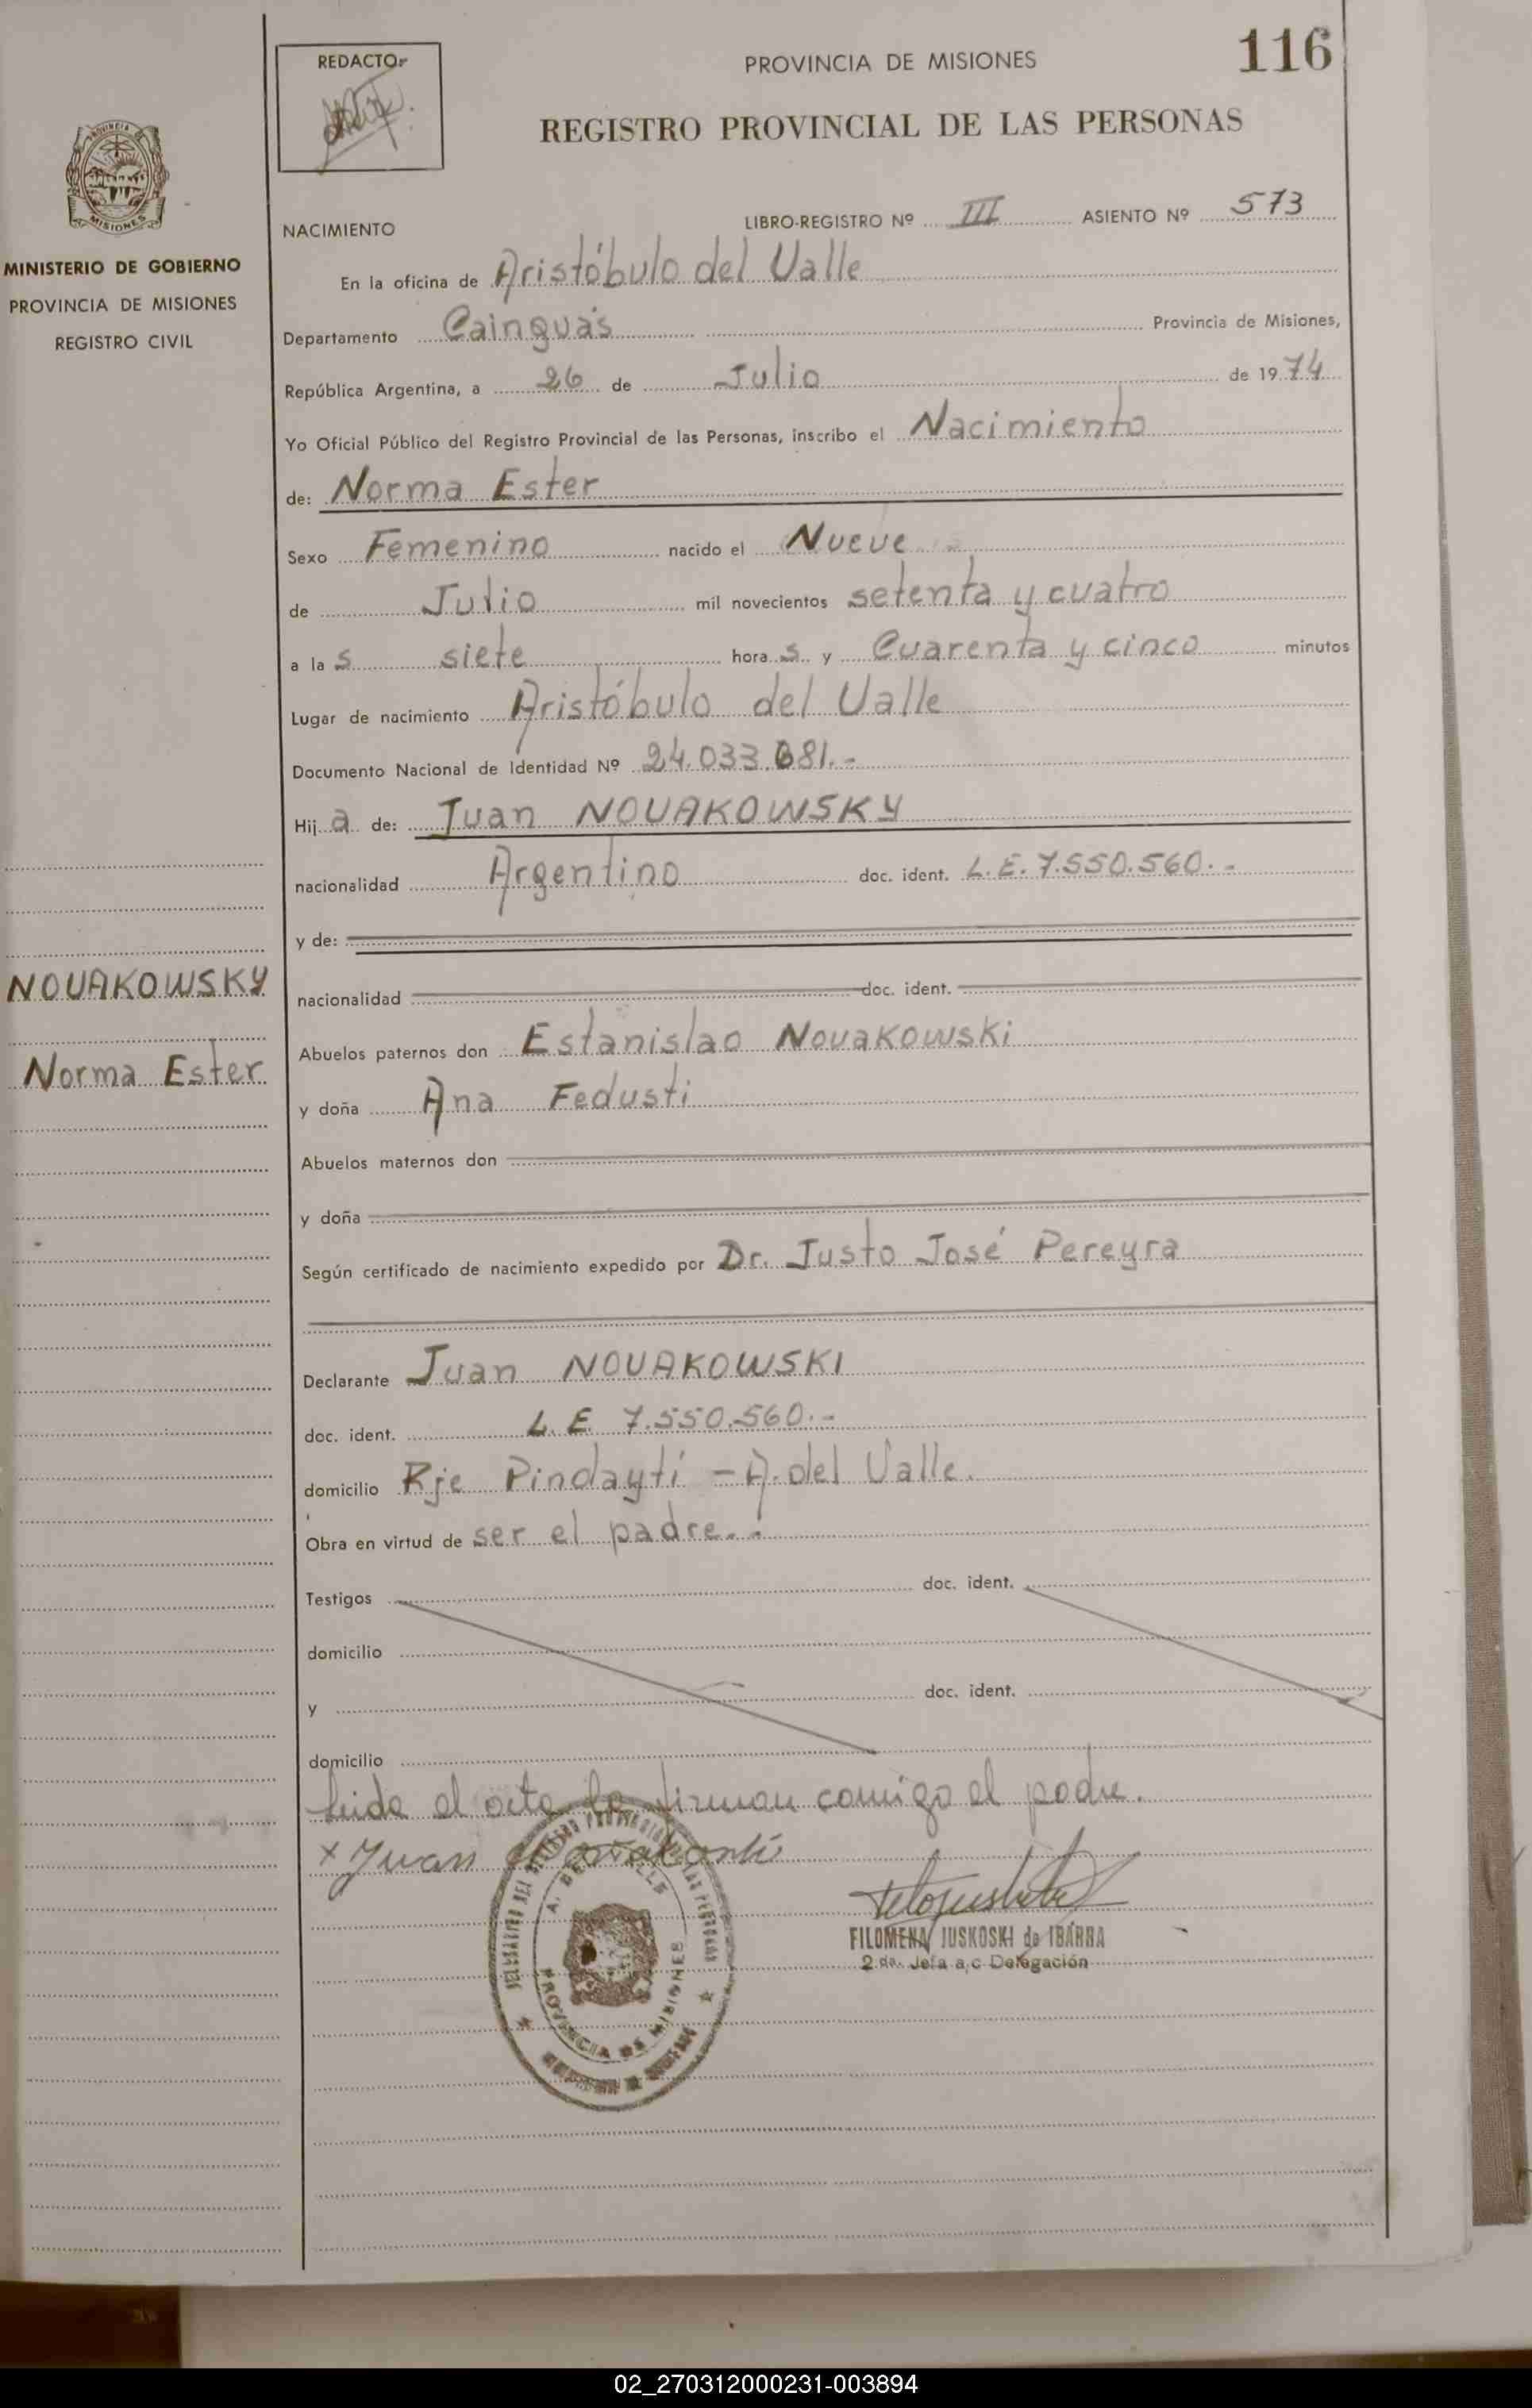 116
REDACTOr
PROVINCIA DE MISIONES
REGISTRO PROVINCIAL DE LAS PERSONAS
MISIONES
MINISTERIO DE GOBIERNO
PROVINCIA DE MISIONES
REGISTRO CIVIL
NOVAKOWSKY
Norma Ester
NACIMIENTO LIBRO-REGISTRO Nº III ASIENTO Nº 573
En la oficina de Aristóbulo del Valle
Departamento Cainguás Provincia de Misiones,
República Argentina, a 26 de Julio de 1974
Yo Oficial Público del Registro Provincial de las Personas, inscribo el Nacimiento
de: Norma Ester
Sexo Femenino nacido el Nueve
de Julio mil novecientos setenta y cuatro
a la s siete hora s y Cuarenta y cinco minutos
Lugar de nacimiento Aristóbulo del Valle
Documento Nacional de Identidad Nº 24.033.681.-
Hij a de: Juan NOVAKOWSKY
nacionalidad Argentino doc. ident. L.E. 7.550.560.-
y de:
nacionalidad doc. ident.
Abuelos paternos don Estanislao Novakowski
y doña Ana Fedusti
Abuelos maternos don
y doña
Según certificado de nacimiento expedido por Dr. Justo José Pereyra
Declarante Juan NOVAKOWSKI
doc. ident. L.E. 7.550.560.-
domicilio Pje Pindaytí - A. del Valle.
Obra en virtud de ser el padre.-
Testigos doc. ident.
domicilio
y doc. ident.
domicilio
Leida el acta la firman comigo el padre.
x Juan
FILOMENA JUSKOSKI de IBARRA
2 da. Jefa a/c Delegación
A. DEL VALLE
PROVINCIA DE MISIONES
02_270312000231-003894